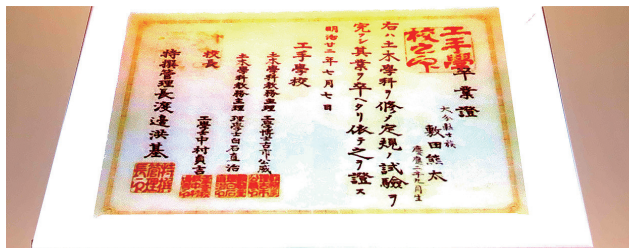 卒業證
大分縣士族
敷田熊太
慶應二年
月生
右ハ土木學科ヲ修メ定規ノ試驗ヲ
完クシ其業ヲ卒ヘタリ依テ之ヲ證ス
明治廿二年七月七日
工手學校
土木學科教務主理 工學博士古市公威
土木學科教務主理 理學士白石直治
校長 工學士中村貞吉
特撰管理長渡邊洪基
工手學校之印